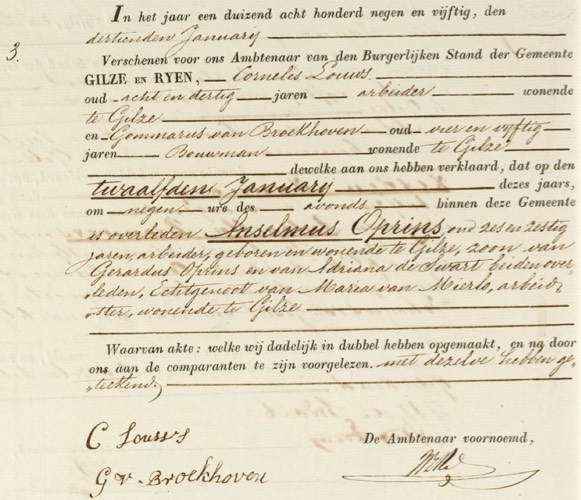 In het jaar een duizend acht honderd negen en vijftig, den
dertienden January
3.
Verschenen voor ons Ambtenaar van den Burgerlijken Stand der Gemeente
GILZE EN RYEN, Cornelis Louws
oud acht en dertig jaren arbeider wonende
te Gilze
en Gommarus van Broekhoven oud vier en vyftig
jaren Bouwman wonende te Gilze
dewelke aan ons hebben verklaard, dat op den
twaalfden January dezes jaars,
om negen ure des avonds binnen deze Gemeente
is overleden Anselmus Oprins, oud zes en zestig
jaren, arbeider, geboren en wonende te Gilze, zoon van
Gerardus Oprins en van Adriana de Swart beiden over-
leden, Echtgenoot van Maria van Mierlo, arbeid-
ster, wonende te Gilze
Waarvan akte: welke wij dadelijk in dubbel hebben opgemaakt, en na door
ons aan de comparanten te zijn voorgelezen. met dezelve hebben ge-
teekend
C Louws
De Ambtenaar voornoemd,
G v. Broekhoven